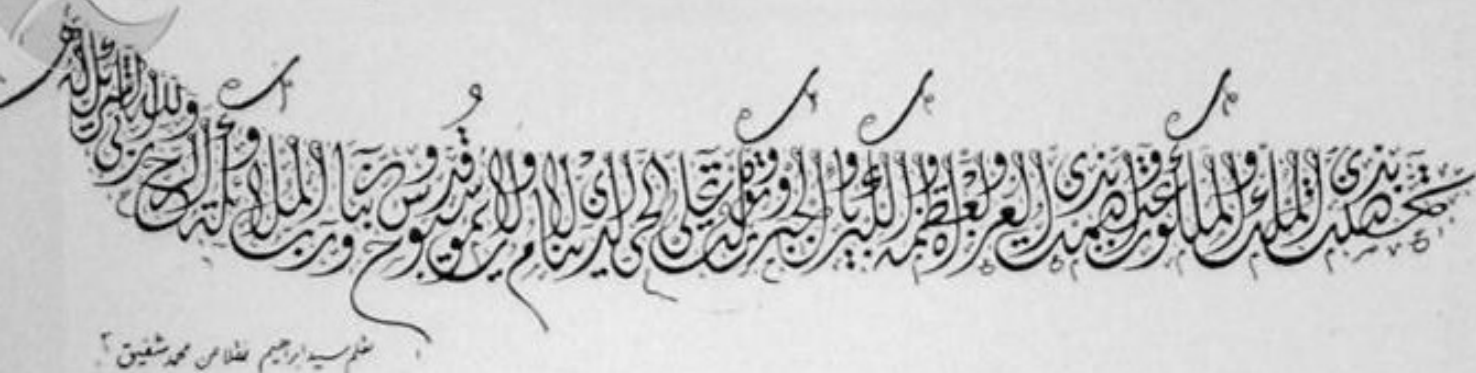 تحصنت بذي الملك والملكوت واعتصمت بذي العزة والعظمة والكبرياء والجبروت وتوكلت على الحي الذي لا ينام ولا يموت سبوح قدوس ربنا ورب الملائكة والروح
بقلم سيد ابراهيم نقلا عن محمد شفيق